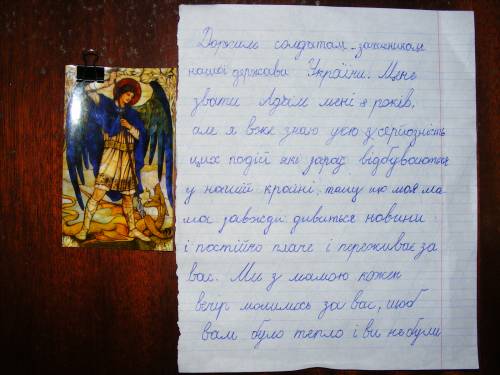 Дорогим солдатам-захисникам
нашої держави України. Мене
звати Мені років,
але я вже знаю усю серйозність
цих подій які зараз відбуваються
у нашій країні, тому що моя ма
ма завжди дивиться новини
і постійно плаче і переживає за
вас. Ми з мамою кожен
вечір молимось за вас, щоб
вам було тепло і ви не були